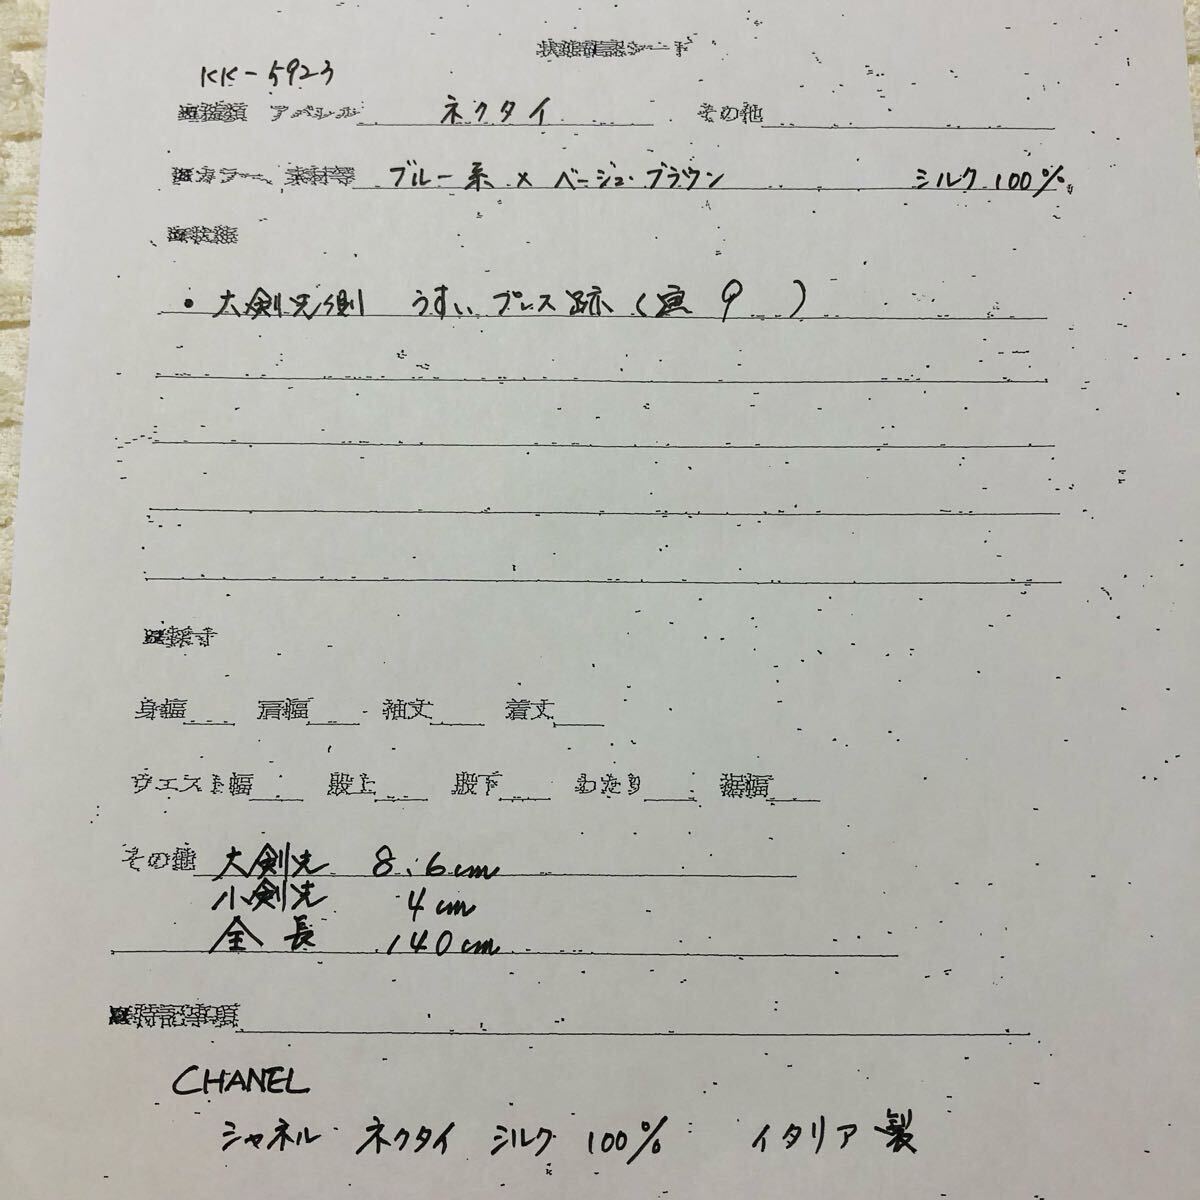 状態確認シート
KK-5923
■種類 アパレル ネクタイ その他
■カラー、素材等 ブルー系 × ベージュ・ブラウン シルク 100%
■状態
・大剣先側 うすいプレス跡 (画 9 )
■採寸
身幅 肩幅 袖丈 着丈
ウエスト幅 股上 股下 わたり 裾幅
その他 大剣先 8.6cm
小剣先 4cm
全長 140cm
■特記事項
CHANEL
シャネル ネクタイ シルク 100% イタリア製